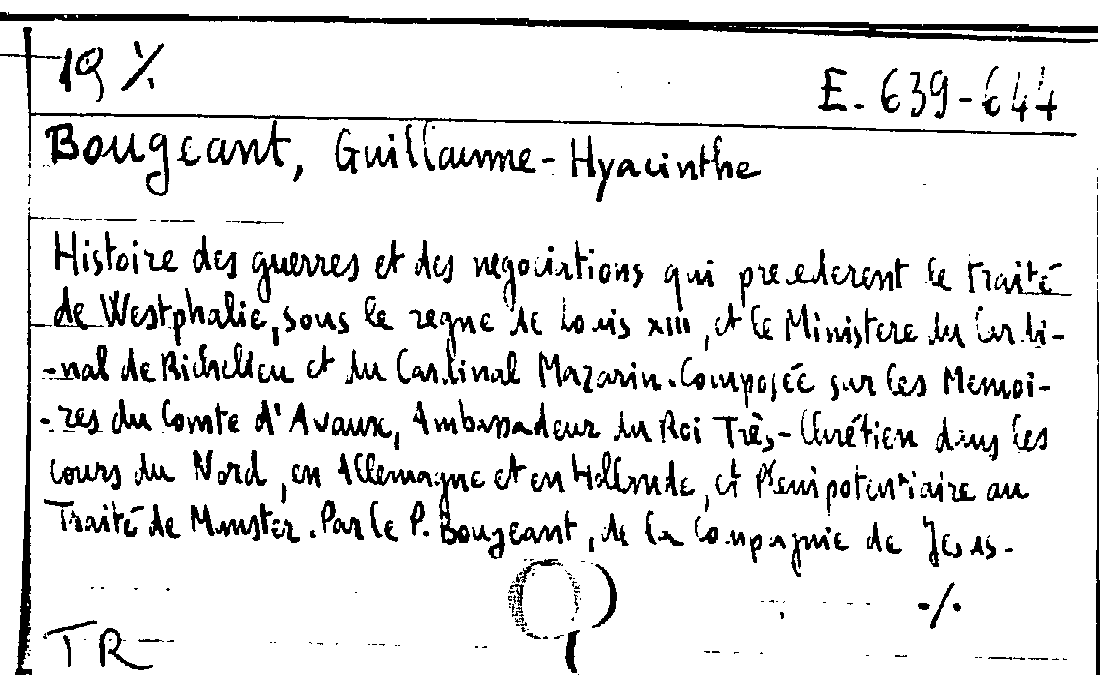 19 ⁒ E. 639-644
Bougeant, Guillaume-Hyacinthe
Histoire des guerres et des negociations qui precederent le traité
de Westphalie, sous le regne de Louis XIII, et le Ministere du Cardi-
-nal de Richelieu et du Cardinal Mazarin. Composée sur les Memoi-
-res du Comte d'Avaux, Ambassadeur du Roi Très-Chrétien dans les
cours du Nord, en Allemagne et en Hollande, et Plenipotentiaire au
Traité de Munster. Par le P. Bougeant, de la Compagnie de Jesus.
./.
TR